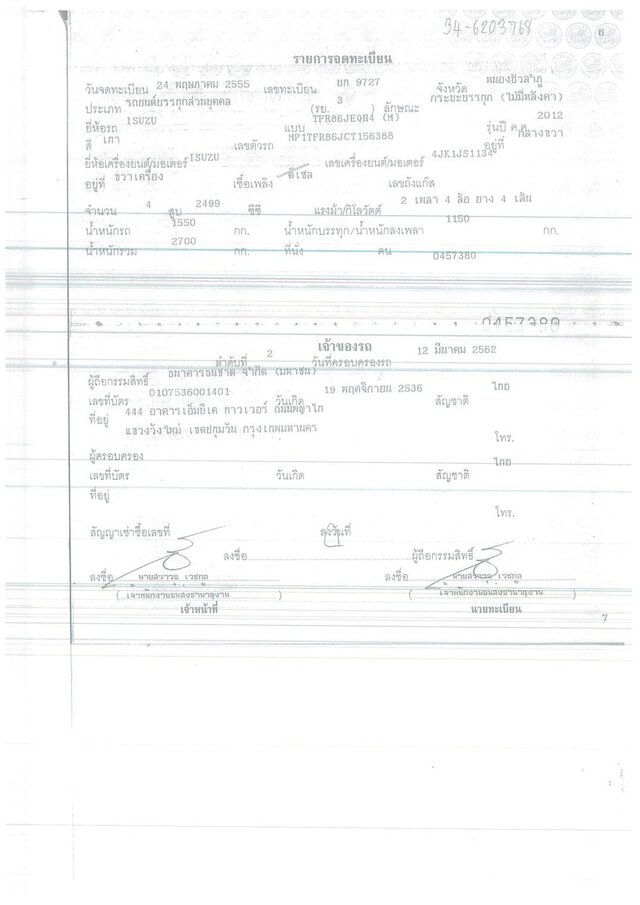 34-6203768
8
รายการจดทะเบียน
วันจดทะเบียน 24 พฤษภาคม 2555 เลขทะเบียน บก 9727 จังหวัด หนองบัวลำภู
ประเภท รถยนต์บรรทุกส่วนบุคคล (รย. 3 ) ลักษณะ กระบะบรรทุก (ไม่มีหลังคา)
ยี่ห้อรถ ISUZU แบบ TFR86JEQH4 (M) รุ่นปี ค.ศ. 2012
สี เทา เลขตัวรถ MP1TFR86JCT156388 อยู่ที่ กลางขวา
ยี่ห้อเครื่องยนต์/มอเตอร์ ISUZU เลขเครื่องยนต์/มอเตอร์ 4JK1JS1134
อยู่ที่ ขวาเครื่อง เชื้อเพลิง ดีเซล เลขถังแก๊ส
จำนวน 4 สูบ 2499 ซีซี แรงม้า/กิโลวัตต์ 2 เพลา 4 ล้อ ยาง 4 เส้น
น้ำหนักรถ 1550 กก. น้ำหนักบรรทุก/น้ำหนักลงเพลา 1150 กก.
น้ำหนักรวม 2700 กก. ที่นั่ง คน 0457380
0457380
เจ้าของรถ
ลำดับที่ 2 วันที่ครอบครองรถ 12 มีนาคม 2562
ผู้ถือกรรมสิทธิ์ ธนาคารธนชาต จำกัด (มหาชน)
เลขที่บัตร 0107536001401 วันเกิด 19 พฤศจิกายน 2536 สัญชาติ ไทย
ที่อยู่ 444 อาคารเอ็มบีเค ทาวเวอร์ ถนนพญาไท
แขวงวังใหม่ เขตปทุมวัน กรุงเทพมหานคร
โทร.
ผู้ครอบครอง
เลขที่บัตร วันเกิด สัญชาติ ไทย
ที่อยู่
โทร.
สัญญาเช่าซื้อเลขที่ ลงวันที่
ลงชื่อ ผู้ถือกรรมสิทธิ์
ลงชื่อ ลงชื่อ
( เจ้าพนักงานขนส่งชำนาญงาน ) ( เจ้าพนักงานขนส่งชำนาญงาน )
เจ้าหน้าที่ นายทะเบียน
7